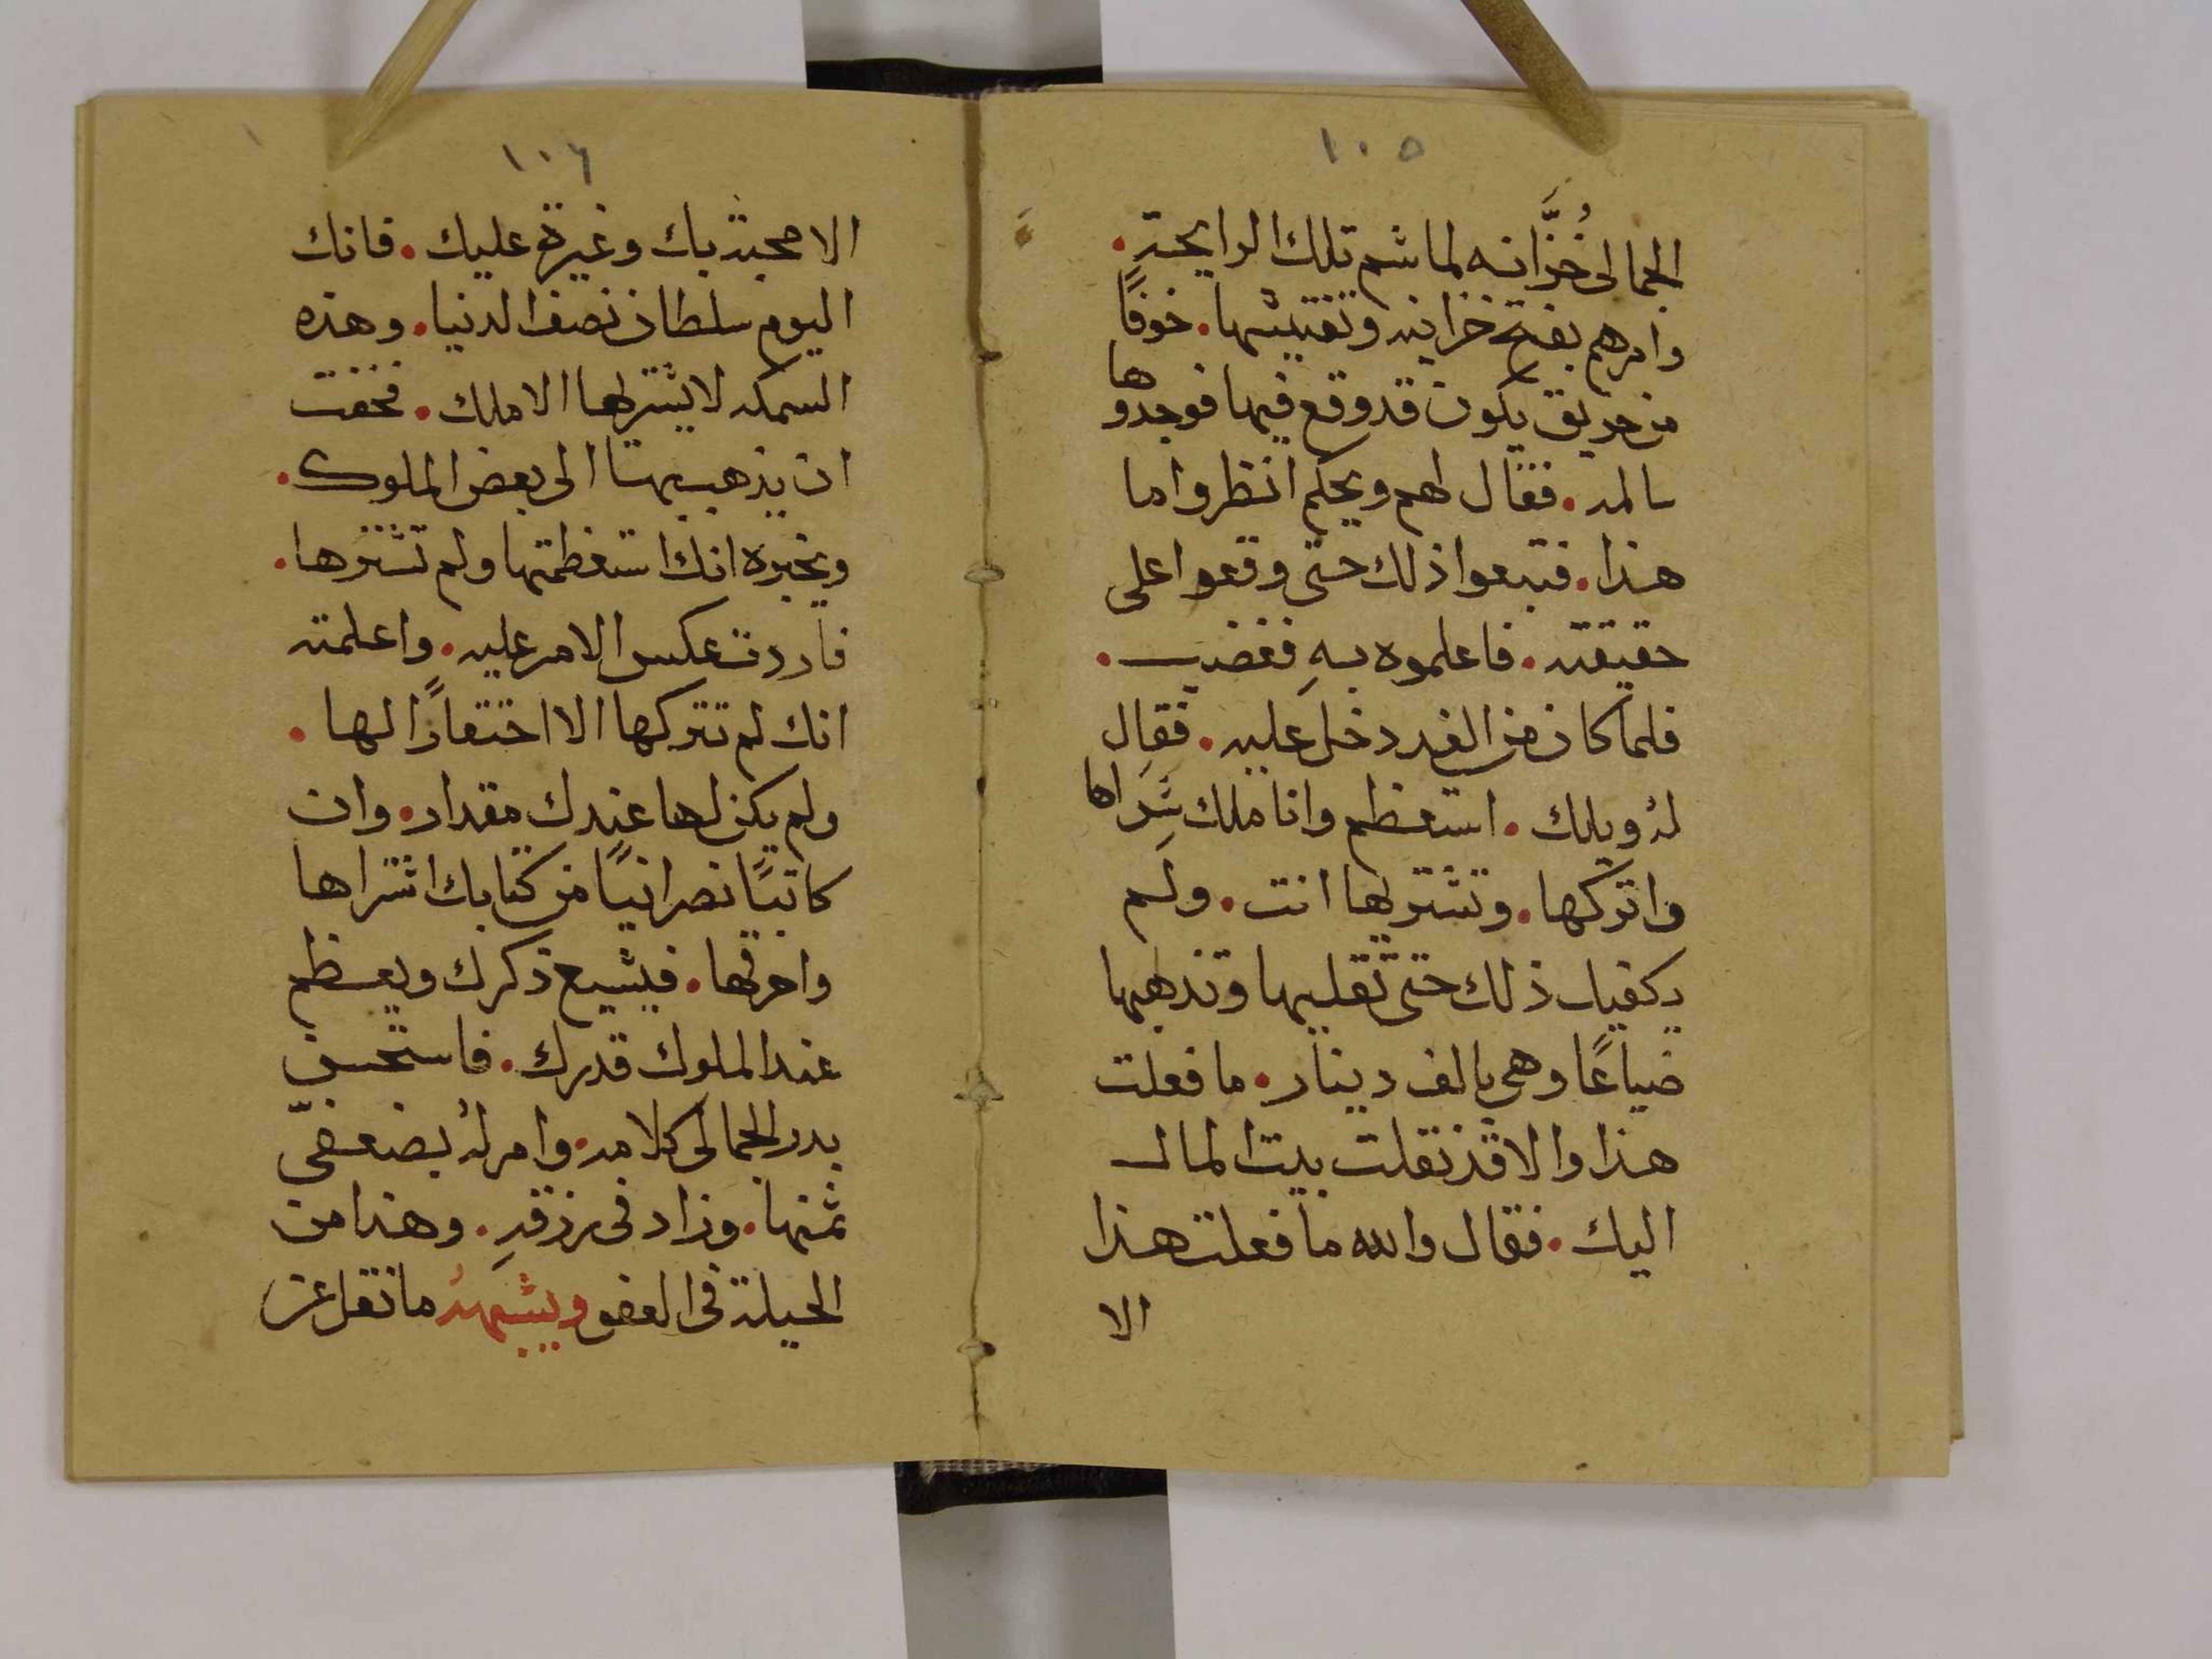 ١٠٥
الجمالى خُزَّانه لما شم تلك الرايحة.
وامرهم بفتح خزاينه وتفتيشها. خوفًا
من حريق يكون قد وقع فيها فوجدوها
سالمه. فقال لهم ويحكم انظروا ما
هذا. فتبعوا ذلك حتى وقعوا على
حقيقته. فاعلموه بهِ فغضب.
فلما كان من الغد دخل عليه. فقال
لهُ ويلك. استعظم وانا ملك شِراها
واتركها. وتشتريها انت. ولم
يكفيك ذلك حتى تقليها وتذهبها
ضياعًا وهى بالف دينار. ما فعلت
هذا والا قد نقلت بيت المال
اليك. فقال والله ما فعلت هذا
الا
١٠٦
الا محبة بك وغيرة عليك. فانك
اليوم سلطان نصف الدنيا. وهذه
السمكه لا يشتريها الا ملك. فخفت
ان يذهب بها الى بعض الملوك.
ويخبره انك استعظمتها ولم تشترها.
فاردت عكس الامر عليه. واعلمته
انك لم تتركها الا احتقارًا لها.
ولم يكن لها عندك مقدار. وان
كاتبًا نصرانيًا من كتابك اشتراها
واحرقها. فيشيع ذكرك ويعظم
عند الملوك قدرك. فاستحسن
بدر الجمالى كلامه. وامر لهُ بضعفى
ثمنها. وزاد فى رزقهِ. وهذا من
الحيلة فى العفو ويشبههُ ما نقل عن